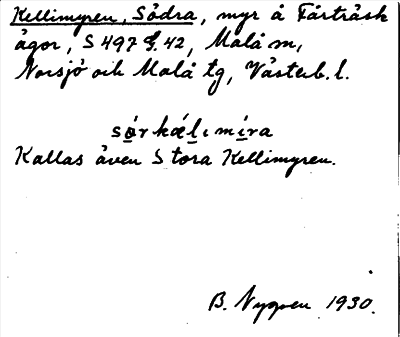 Kellimyren, Södra, myr å Fårträsk
ägor, S 497 g. 42, Malå m,
Norsjö och Malå tg, Västerb. l.
sǿrkǽlımíra
Kallas även Stora Kellimyren.
B. Nygren 1930.